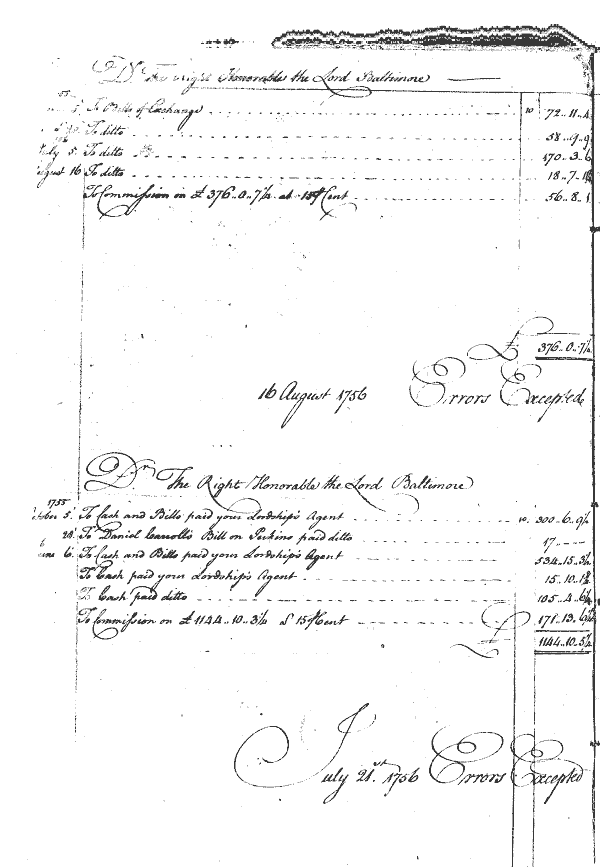 Dr. The Right Honorables the Lord Baltimore
5. To Bills of Exchange 10 72..11..4
To ditto 58..9..9
July 5. To ditto 170..3..6
August 16 To ditto 18..7..
To Commission on £ 376..0..7½ at 15 ⅌ Cent 56..8..1
£ 376..0..7½
16 August 1756 Errors Excepted
Dr. The Right Honorable the Lord Baltimore
1755
5. To Cash and Bills paid your Lordship's Agent 10. 300..6..9½
28. To Daniel Carroll's Bill on Perkins paid ditto 17.. —
6. To Cash and Bills paid your Lordship's Agent 534..15..3½
To Cash paid your Lordship's Agent 15..10..
To Cash paid ditto 105..4..
To Commission on £ 1144..10..3½ @ 15 ⅌ Cent 171..13..
£ 1144..10..5½
July 21st. 1756 Errors Excepted